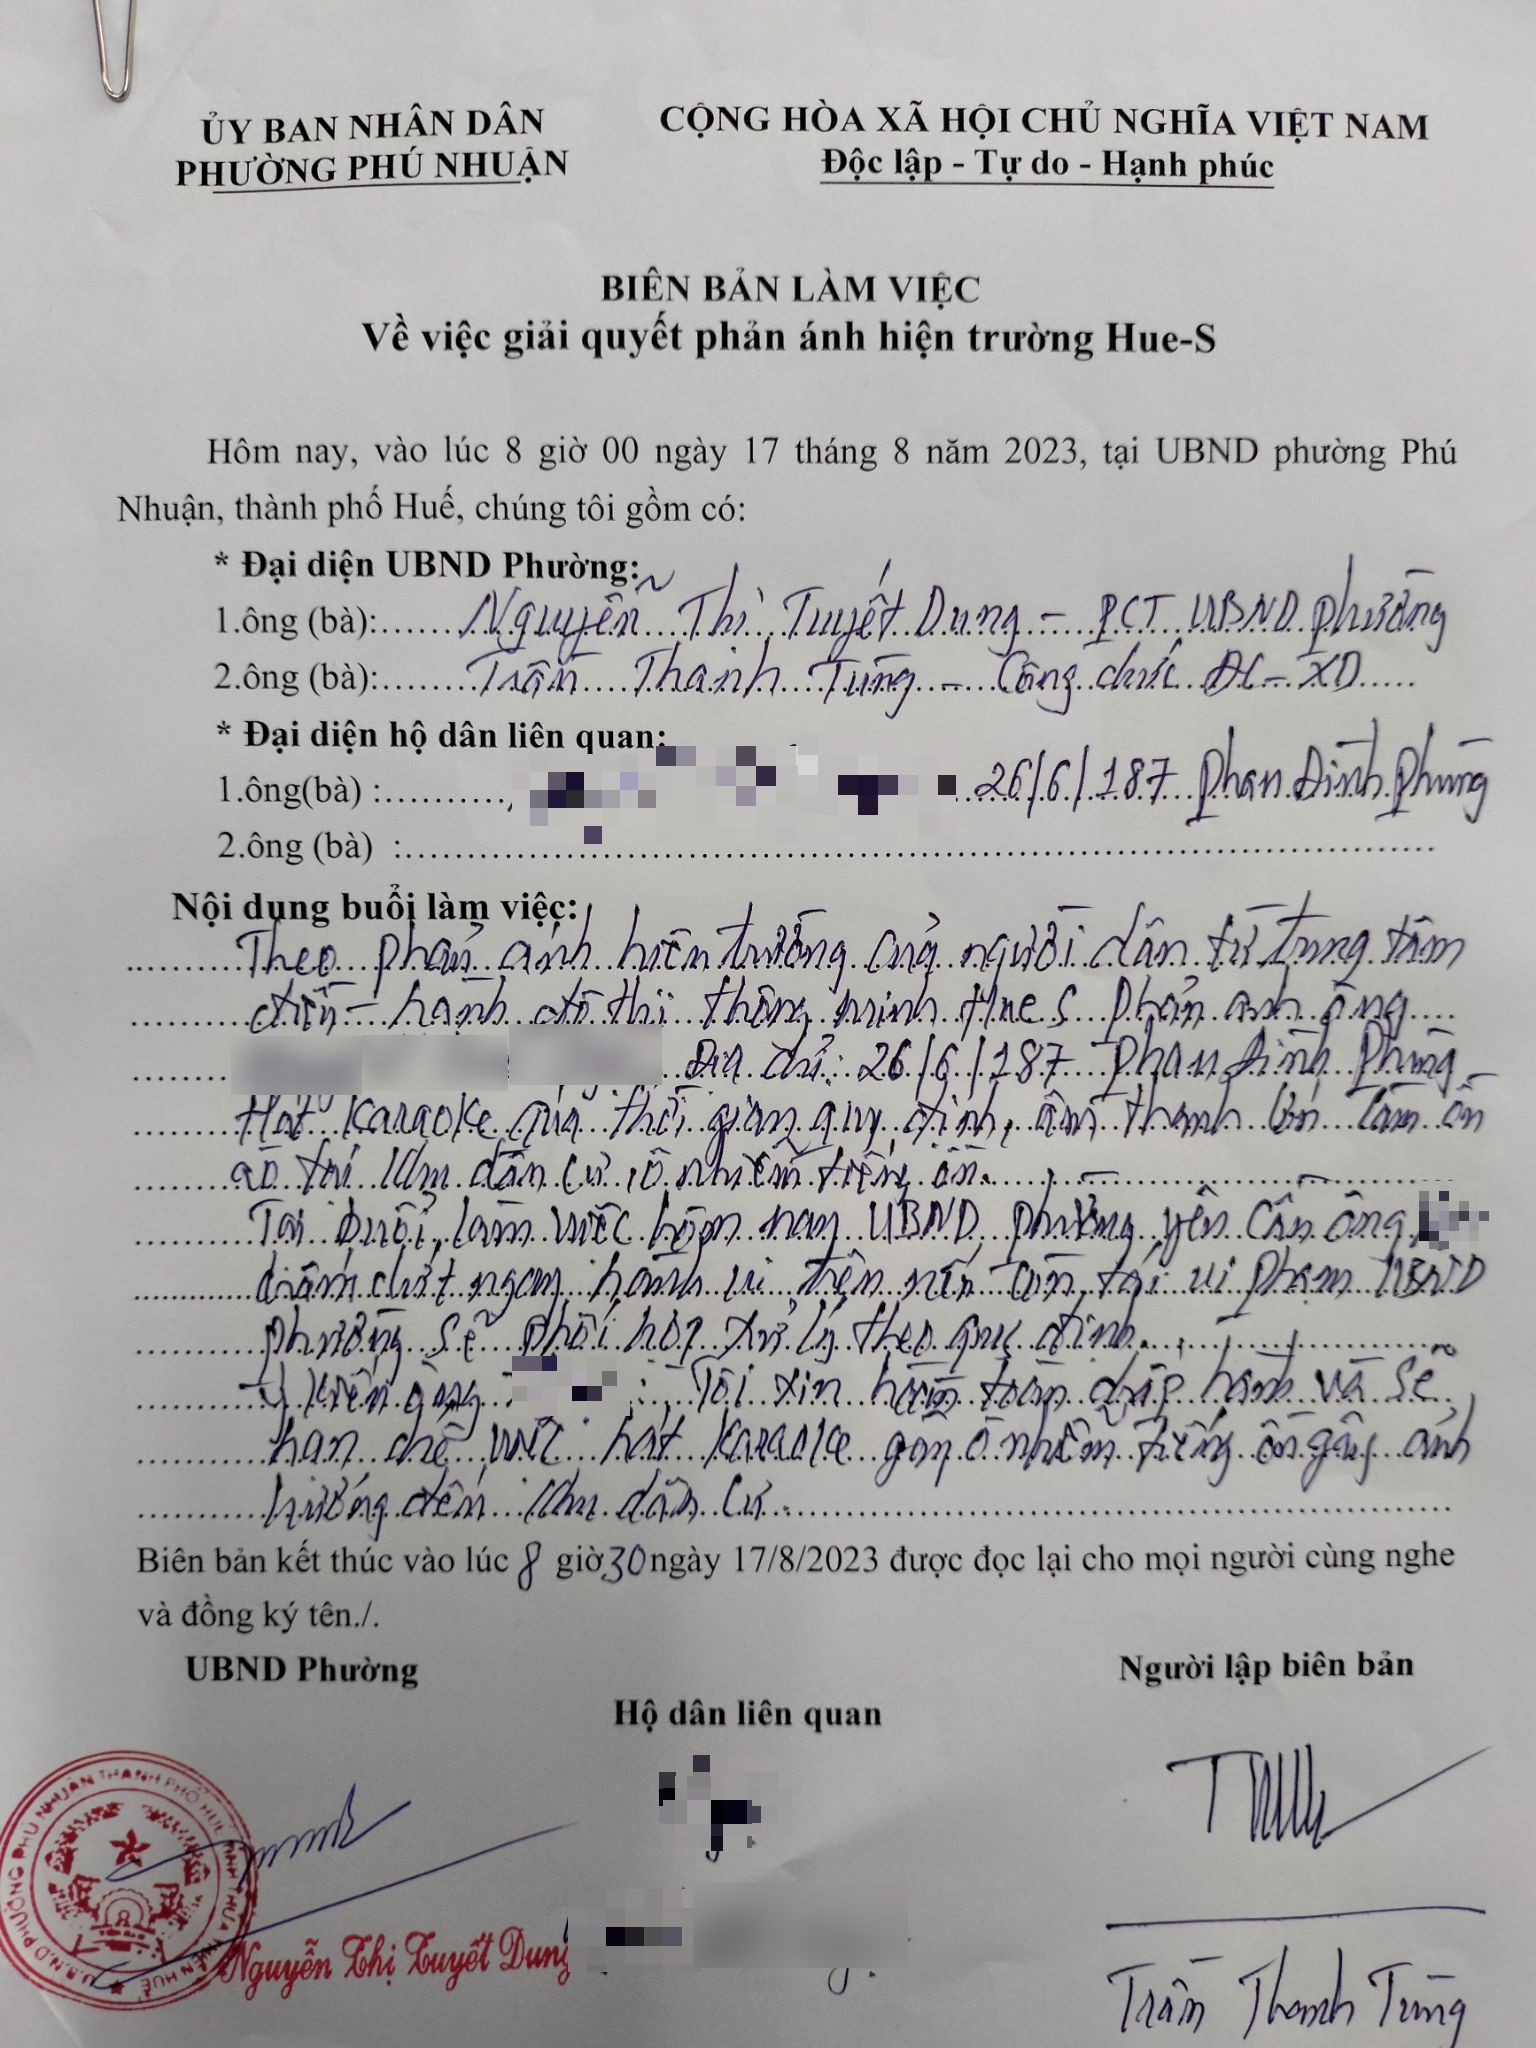 ỦY BAN NHÂN DÂN
PHƯỜNG PHÚ NHUẬN
CỘNG HÒA XÃ HỘI CHỦ NGHĨA VIỆT NAM
Độc lập - Tự do - Hạnh phúc
BIÊN BẢN LÀM VIỆC
Về việc giải quyết phản ánh hiện trường Hue-S
Hôm nay, vào lúc 8 giờ 00 ngày 17 tháng 8 năm 2023, tại UBND phường Phú
Nhuận, thành phố Huế, chúng tôi gồm có:
* Đại diện UBND Phường:
1.ông (bà):.......Nguyễn Thị Tuyết Dung - PCT UBND phường
2.ông (bà):.......Trần Thanh Tùng - Công chức ĐC-XD.....
* Đại diện hộ dân liên quan:
1.ông(bà) :.......... 26/6/187 Phan Đình Phùng
2.ông (bà) :..........
Nội dung buổi làm việc:
Theo phản ánh hiện trường của người dân từ trung tâm
điều hành đô thị thông minh Hue S phản ánh ông
Địa chỉ: 26/6/187 Phan Đình Phùng
Hát Karaoke quá thời gian quy định, âm thanh lớn làm ồn
ào tại khu dân cư, ô nhiễm tiếng ồn.
Tại buổi làm việc hôm nay UBND phường yêu cầu ông
chấm dứt ngay hành vi trên nếu còn tái vi phạm UBND
phường sẽ phối hợp xử lý theo quy định.
Ý kiến ông : Tôi xin hoàn toàn chấp hành và sẽ
hạn chế việc hát Karaoke gây ô nhiễm tiếng ồn gây ảnh
hưởng đến khu dân cư.
Biên bản kết thúc vào lúc 8 giờ 30 ngày 17/8/2023 được đọc lại cho mọi người cùng nghe
và đồng ký tên./.
UBND Phường
Hộ dân liên quan
Người lập biên bản
U.B.N.D PHƯỜNG PHÚ NHUẬN THÀNH PHỐ HUẾ TỈNH THỪA THIÊN HUẾ
Nguyễn Thị Tuyết Dung
Trần Thanh Tùng